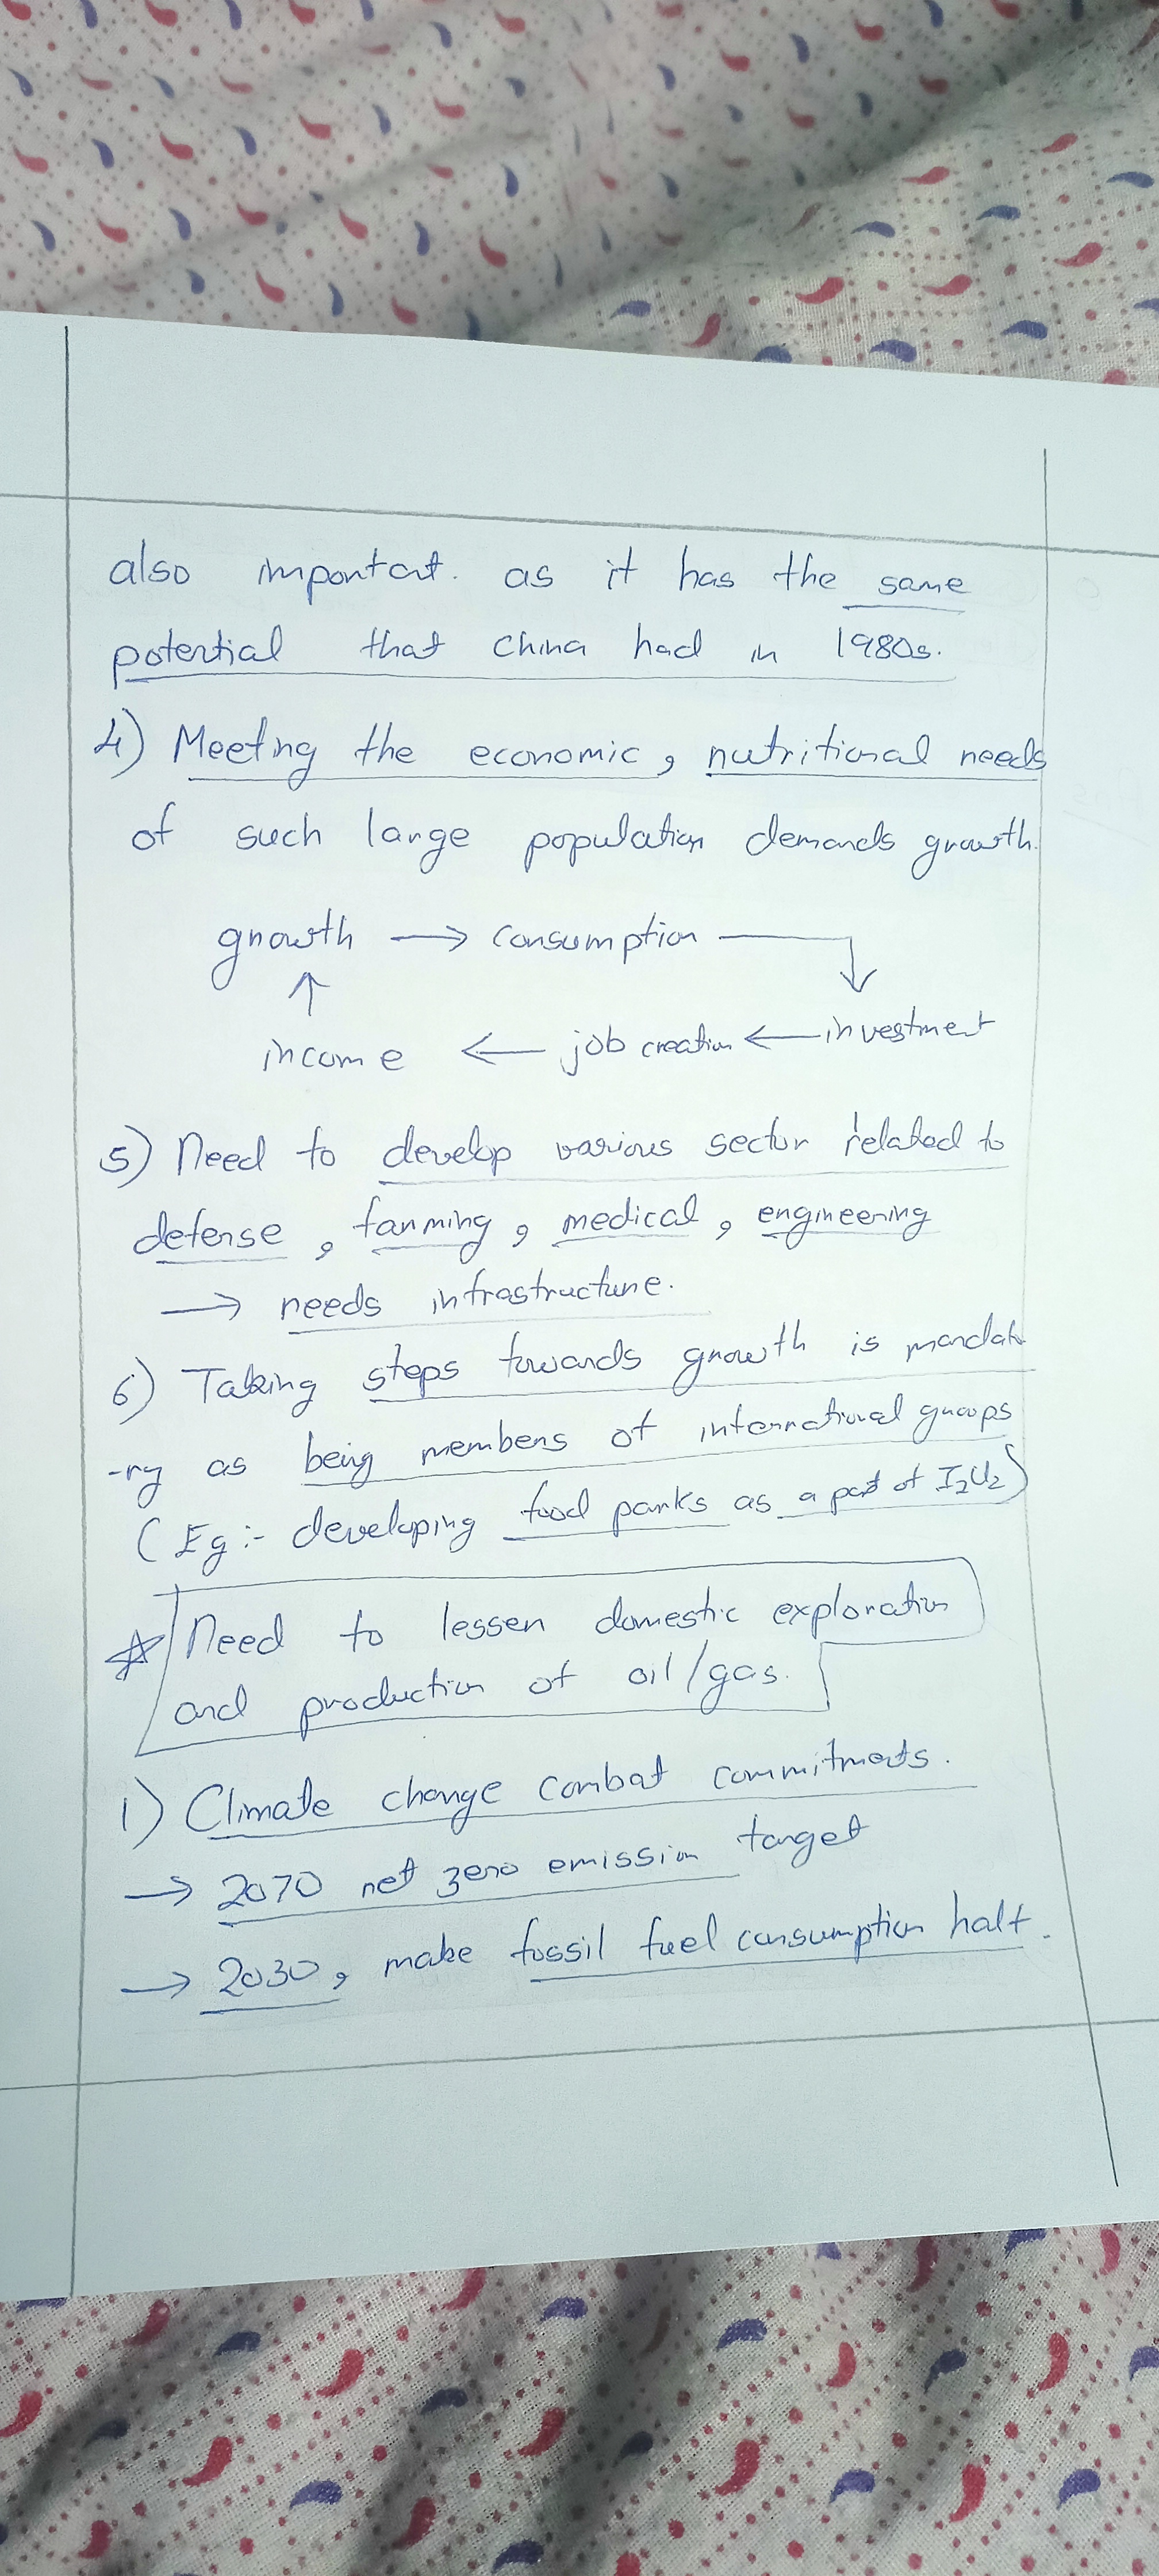 also important. as it has the same
potential that China had in 1980s.
4) Meeting the economic, nutritional needs
of such large population demands growth.
growth → consumption
income ← job creation ← investment
5) Need to develop various sector related to
defense, farming, medical, engineering
→ needs infrastructure.
6) Taking steps towards growth is mandato
-ry as being members of international groups
(Eg:- developing food parks as a part of I2U2)
☆ Need to lessen domestic exploration
and production of oil/gas.
1) Climate change combat commitments.
→ 2070 net zero emission target
→ 2030, make fossil fuel consumption half.